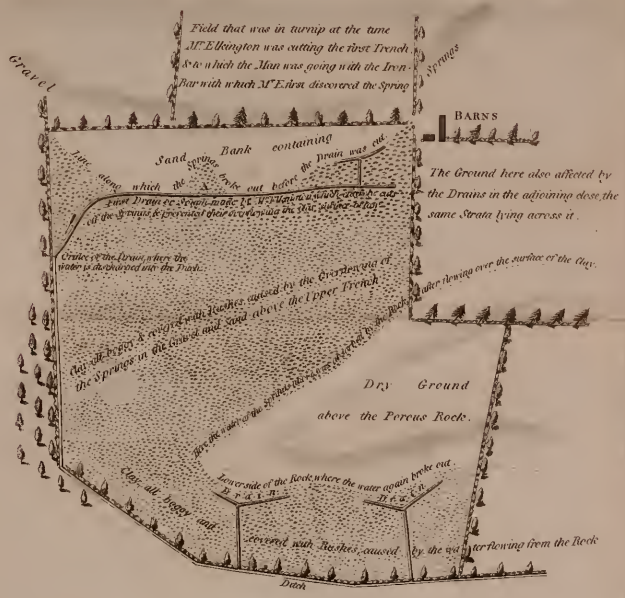 Field that was in turnip at the time
Mr. Elkington was cutting the first Trench,
& to which the Man was going with the Iron-
Bar with which Mr. E. first discovered the Spring
Gravel
Springs
BARNS
Sand Bank containing
Springs
Line along which the Springs broke out before the Drain was cut.
The Ground here also affected by
the Drains in the adjoining close, the
same Strata lying across it.
First Drain or Trench made by Mr. Elkington which
off the Springs & prevented their overflowing the
Outlet of the Drain, where the
water is discharged into the Ditch.
Clay all boggy & covered with Rushes, caused by the Overflowing of
the Springs in the Gravel and Sand above the Upper Trench
Here the water of the Springs by the Rock, after flowing over the surface of the Clay.
Dry Ground
above the Porous Rock.
Lower side of the Rock, where the water again broke out
Drain
Drain
Clay all boggy and covered with Rushes, caused by the water flowing from the Rock
Ditch